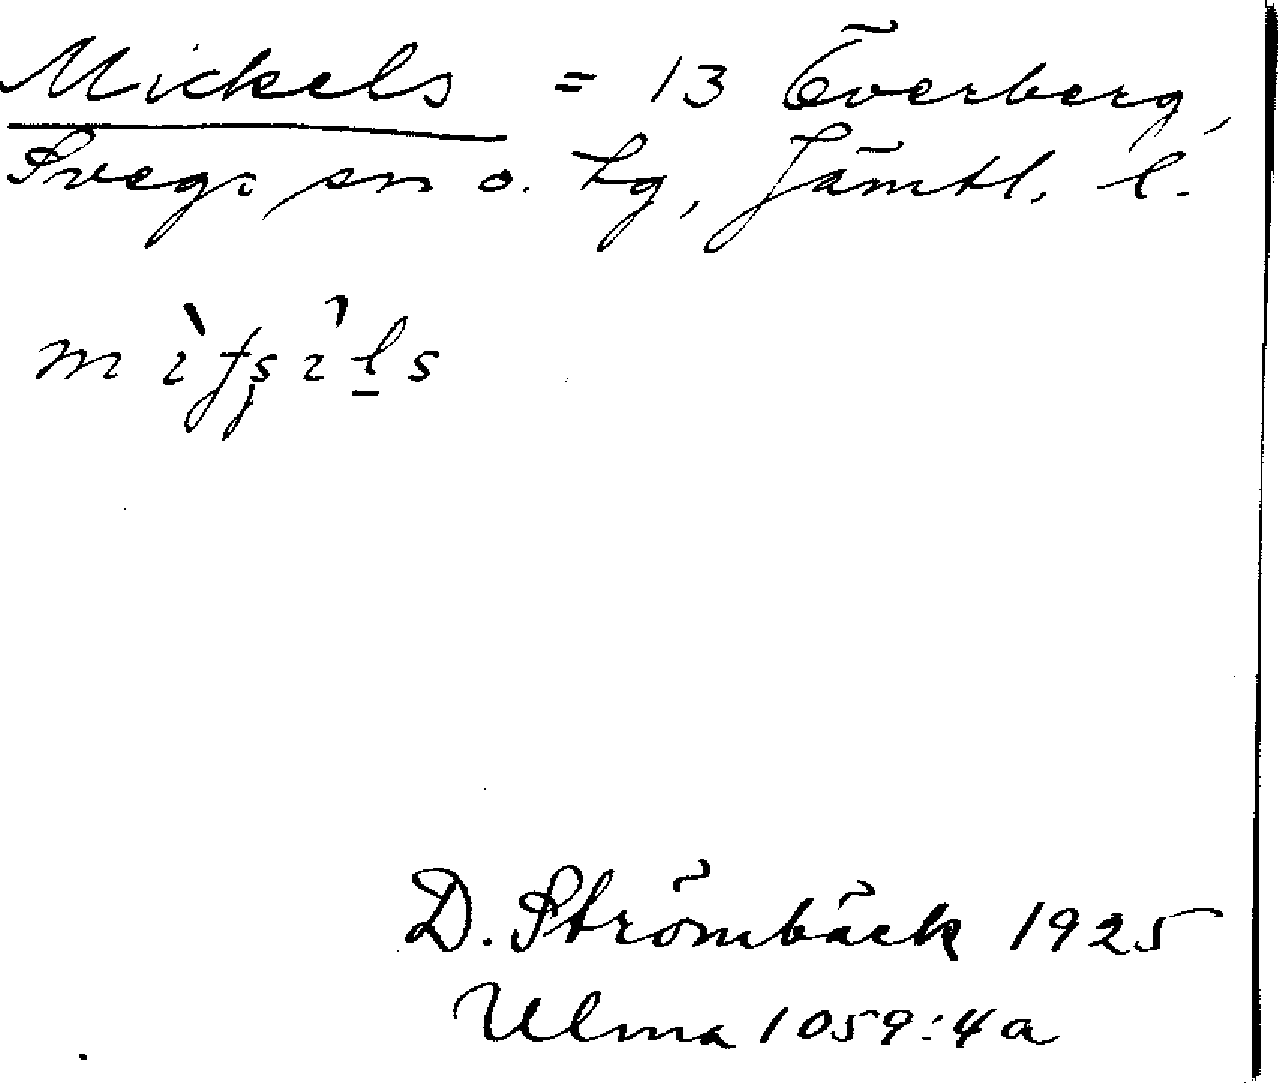 Mickels = 13 Överberg,
Svegs sn o. tg, Jämtl. l.
D. Strömbäck 1925
Ulma 1059:4a